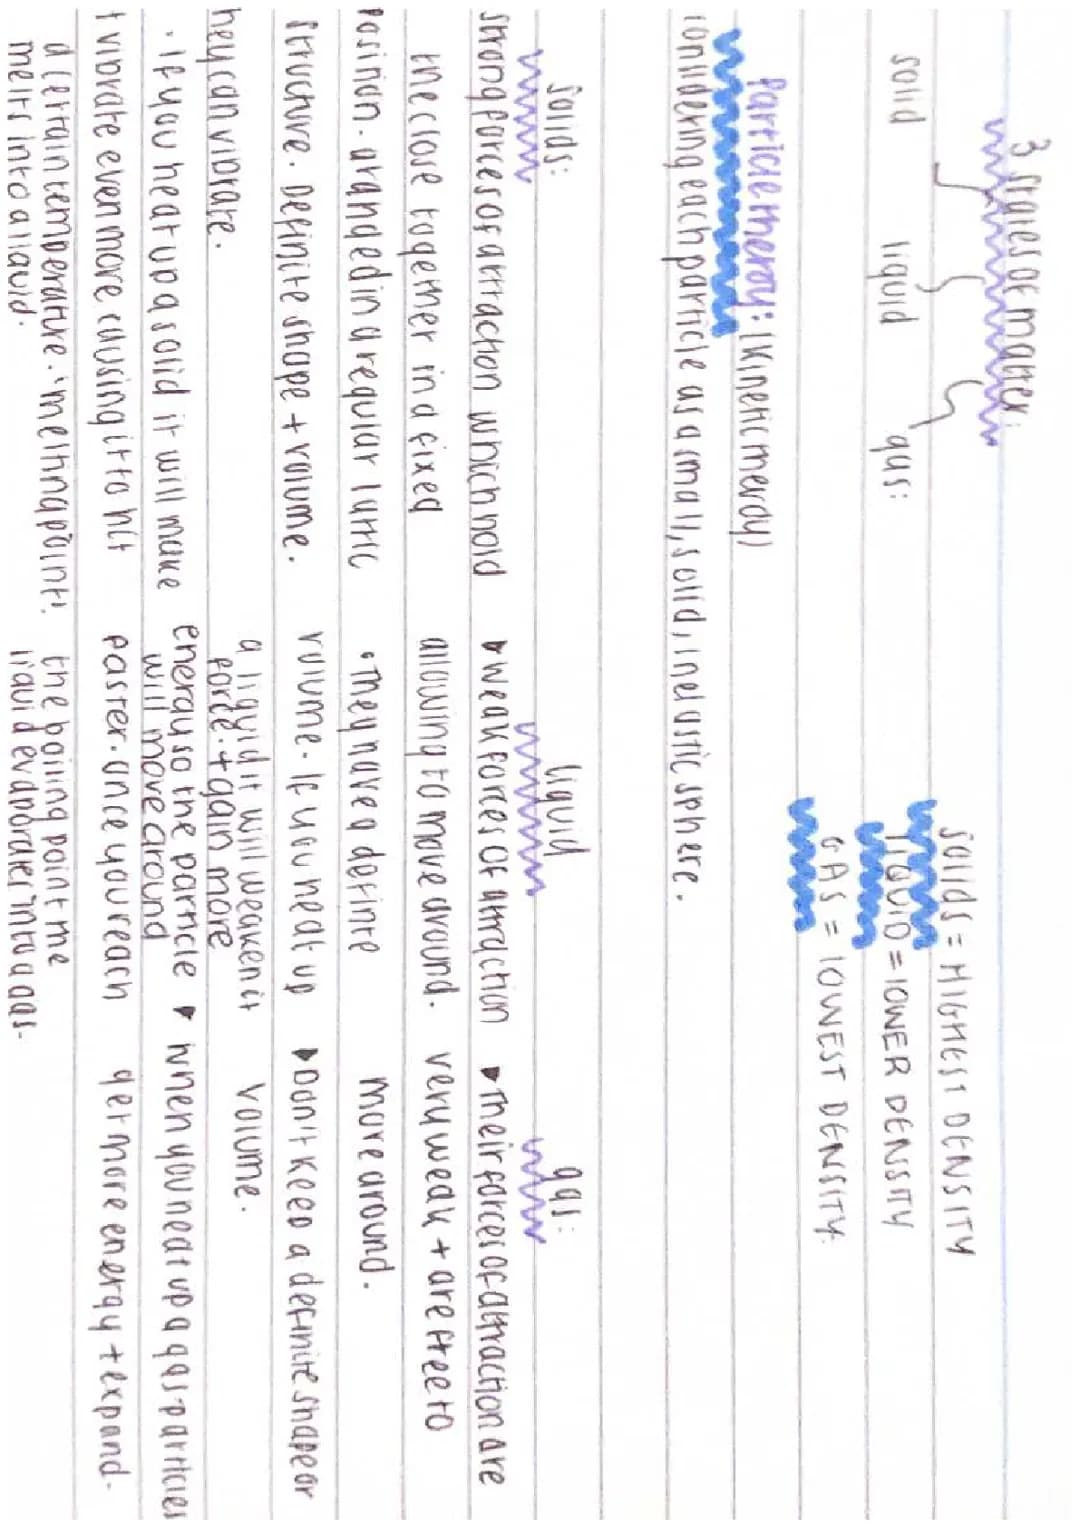 3 states of matter:
solid liquid gas:
SOLIDS = HIGHEST DENSITY
LIQUID = LOWER DENSITY
GAS = LOWEST DENSITY.
Particle theory: (Kinetic theory)
considering each particle as a small, solid, inelastic sphere.
solids:
strong forces of attraction which hold
the close together in a fixed
position. aranged in a regular lattic
structure. Definite shape + volume.
they can vibrate.
· If you heat up a solid it will make
t vibrate even more causing it to hit
a certain temperature. 'melting point'
melts into a liquid.
liquid
▾ weak forces of attraction
allowing to move around.
· they have a definte
volume. If you heat up
a liquid it will weaken it
force. + gain more
energy so the particle
will move around
faster. once you reach
the boiling point the
liquid evaporates into a gas.
gas:
▾ Their forces of attraction are
very weak + are free to
move around.
▾ Don't keep a definite shape or
volume.
▾ when you heat up a gas-particles
get more energy + expand.